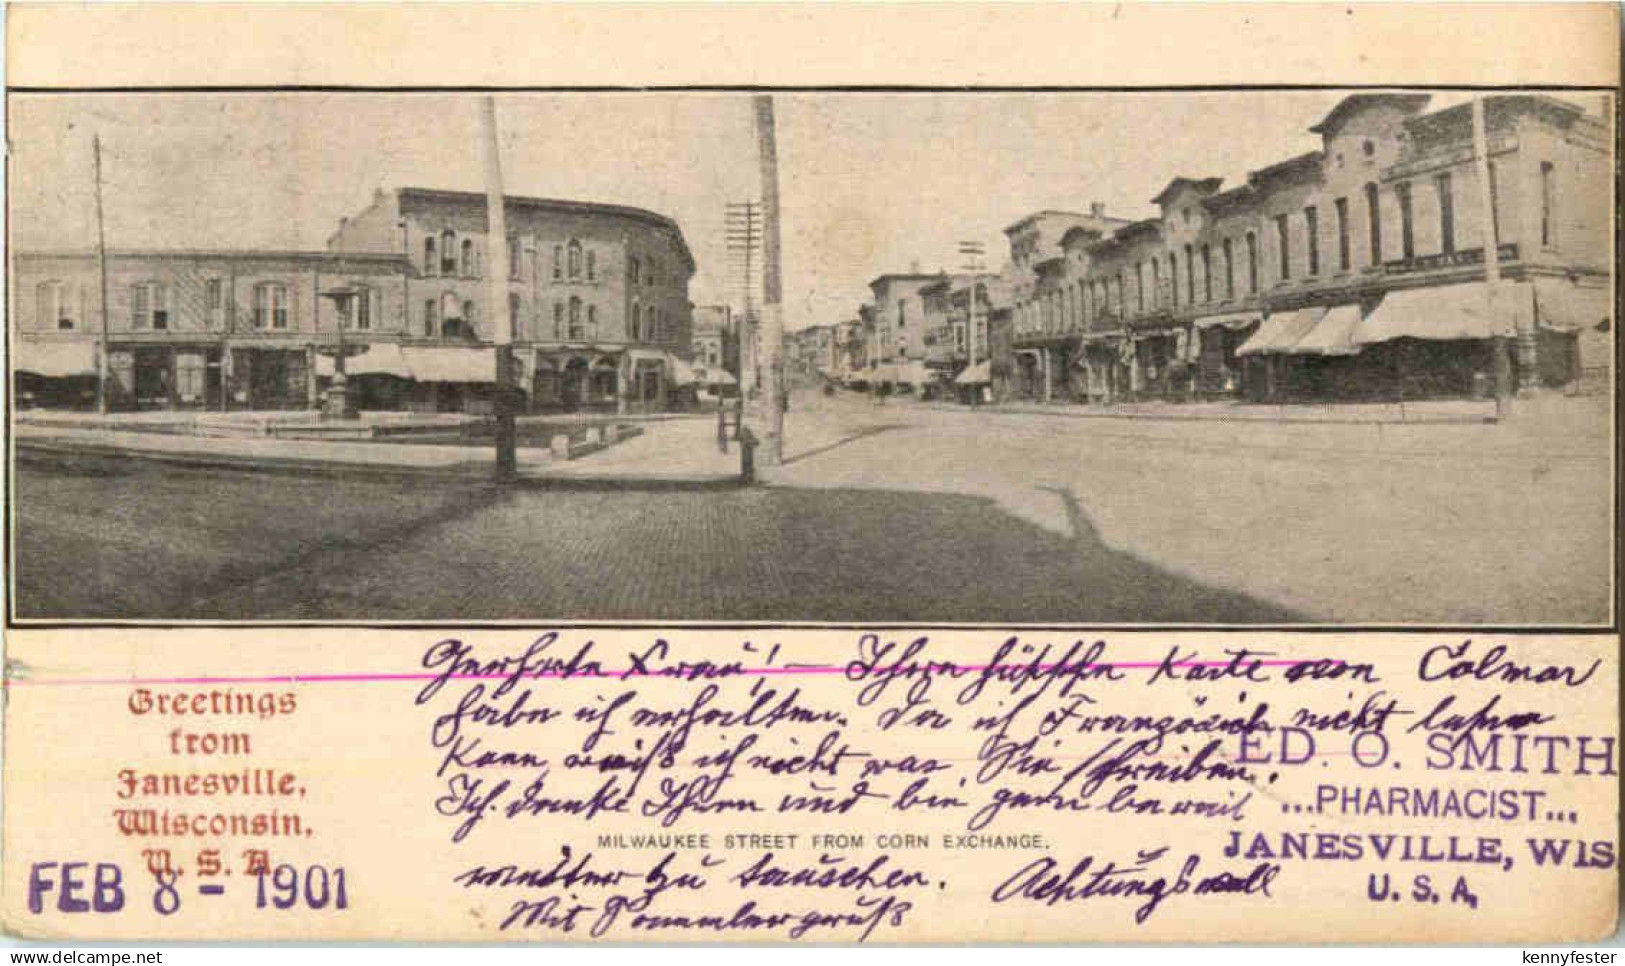 Geehrte Frau! — Ihren hübschen Karte von Colmar
habe ich erhalten. Da ich Französich nicht lesen
Kann weiß ich nicht was Sie schreiben.
Ich danke Ihnen und bin gern bereit
MILWAUKEE STREET FROM CORN EXCHANGE.
weiter zu tauschen. Achtungsvoll
Mit Sammlergruß
Greetings
from
Janesville,
Wisconsin,
U. S. A.
FEB 8 - 1901
ED. O. SMITH
...PHARMACIST...
JANESVILLE, WIS
U. S. A.
delcampe.net
kennyfester